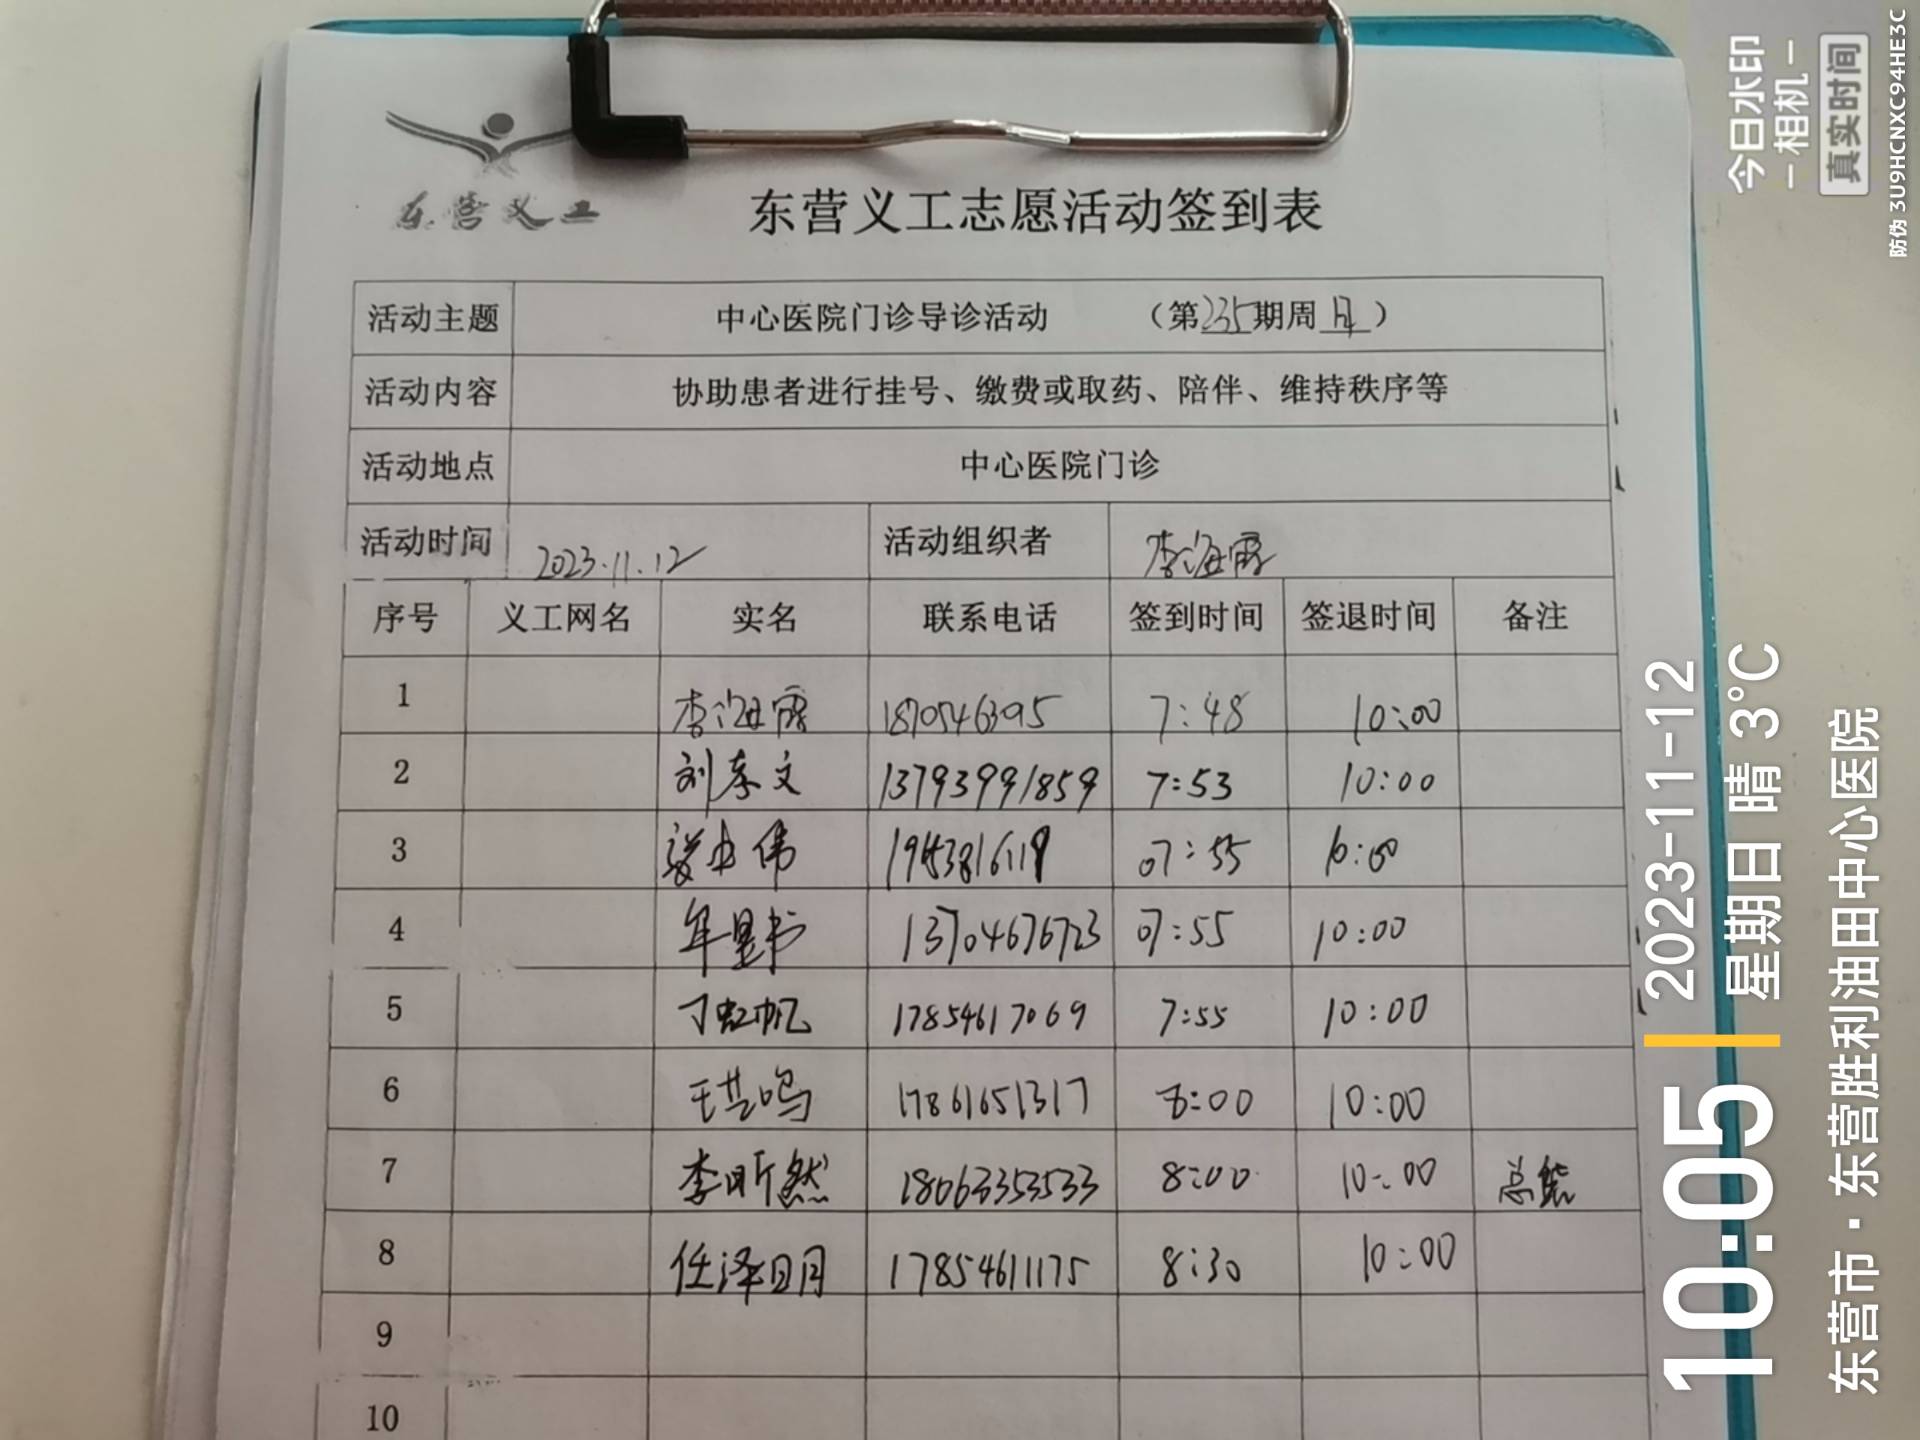 东营义工
东营义工志愿活动签到表
活动主题 中心医院门诊导诊活动 （第235期周日）
活动内容 协助患者进行挂号、缴费或取药、陪伴、维持秩序等
活动地点 中心医院门诊
活动时间 2023.11.12 活动组织者 李海霞
序号 义工网名 实名 联系电话 签到时间 签退时间 备注
1 李海霞 18705463095 7:48 10:00
2 刘孝文 13793991859 7:53 10:00
3 07:55 10:00
4 13704676723 07:55 10:00
5 丁虹帆 17854617069 7:55 10:00
6 王艺鸣 17861651317 8:00 10:00
7 李昕然 18063353533 8:00 10:00 总结
8 任泽明 17854611175 8:30 10:00
9
10
今日水印
-相机-
真实时间
防伪 3U9HCNXC94HE3C
10:05
2023-11-12
星期日 晴 3°C
东营市·东营胜利油田中心医院